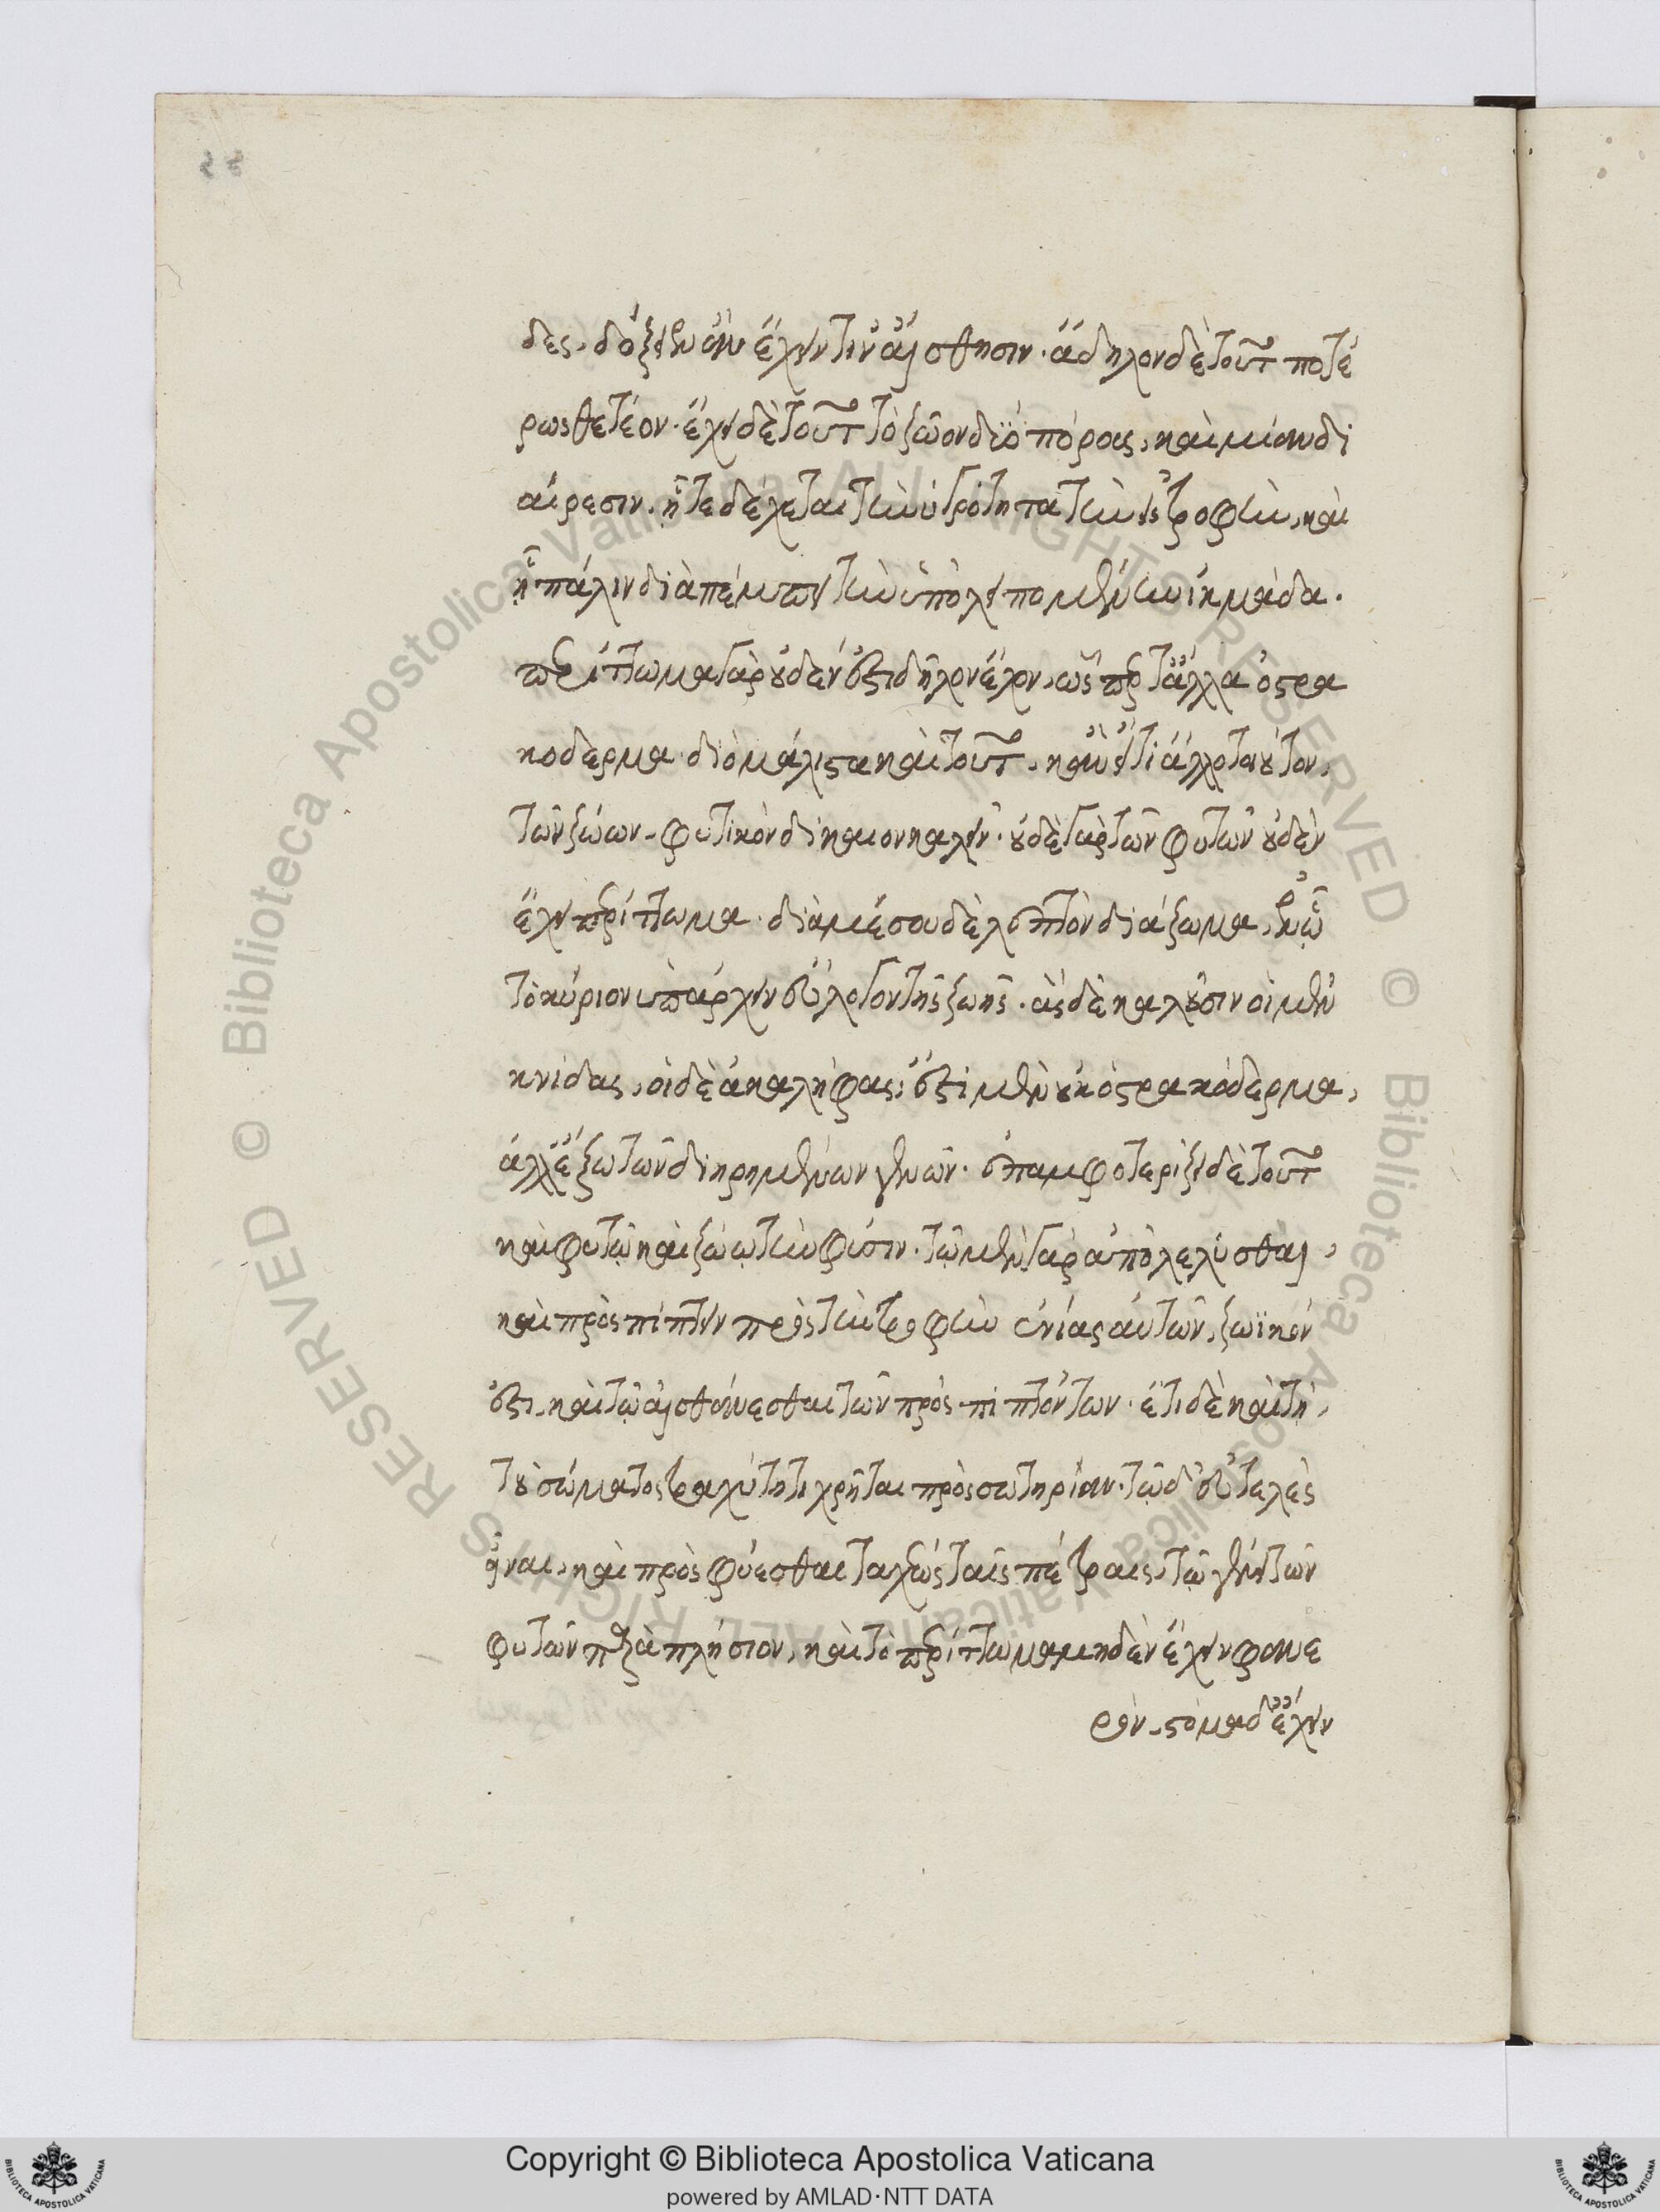 δες. δόξειεν ἂν ἔχειν τιν' αἴσθησιν. ἄδηλον δὲ τοῦτο ποτέ
ρως θετέον. ἔχει δὲ τοῦτο τὸ ζῶον δύο πόρους, καὶ μίαν δι
αίρεσιν. ᾗ τε δέχεται τὴν ὑγρότητα τὴν εἰς τροφὴν, καὶ
ᾗ πάλιν διαπέμπει τὴν ὑπολειπομένην ἰκμάδα.
περίττωμα γὰρ οὐδέν ἐστι δῆλον ἔχον, ὥσπερ τἆλλα ὀστρα
κόδερμα. διὸ μάλιστα καὶ τοῦτο, κἂν εἴ τι ἄλλο τοιοῦτον,
τῶν ζώων. φυτικὸν δίκαιον καλεῖν. οὐδὲ γὰρ τῶν φυτῶν οὐδὲν
ἔχει περίττωμα. διὰ μέσου δὲ λεπτὸν διάζωμα, ἐν ᾧ
τὸ κύριον ὑπάρχειν εὔλογον τῆς ζωῆς. ἃς δὲ καλοῦσιν οἱ μὲν
κνίδας, οἱ δὲ ἀκαλήφας, ἔστι μὲν οὐκ ὀστρακόδερμα,
ἀλλ' ἔξω τῶν διῃρημένων γενῶν. ἐπαμφοτερίζει δὲ τοῦτο
καὶ φυτῷ καὶ ζώῳ τὴν φύσιν. τῷ μὲν γὰρ ἀπολελύσθαι,
καὶ προσπίπτειν πρὸς τὴν τροφὴν ἐνίας αὐτῶν, ζωϊκόν
ἐστι, καὶ τῷ αἰσθάνεσθαι τῶν προσπιπτόντων. ἔτι δὲ καὶ τῇ,
τοῦ σώματος τραχύτητι χρῆται πρὸς σωτηρίαν. τῷ δ' ἀτελὲς
εἶναι, καὶ προσφύεσθαι ταχέως ταῖς πέτραις, τῷ γένει τῶν
φυτῶν παραπλήσιον, καὶ τὸ περίττωμα μηδὲν ἔχειν φανε
ρόν. στόμα δ' ἔχειν
Copyright © Biblioteca Apostolica Vaticana
powered by AMLAD·NTT DATA